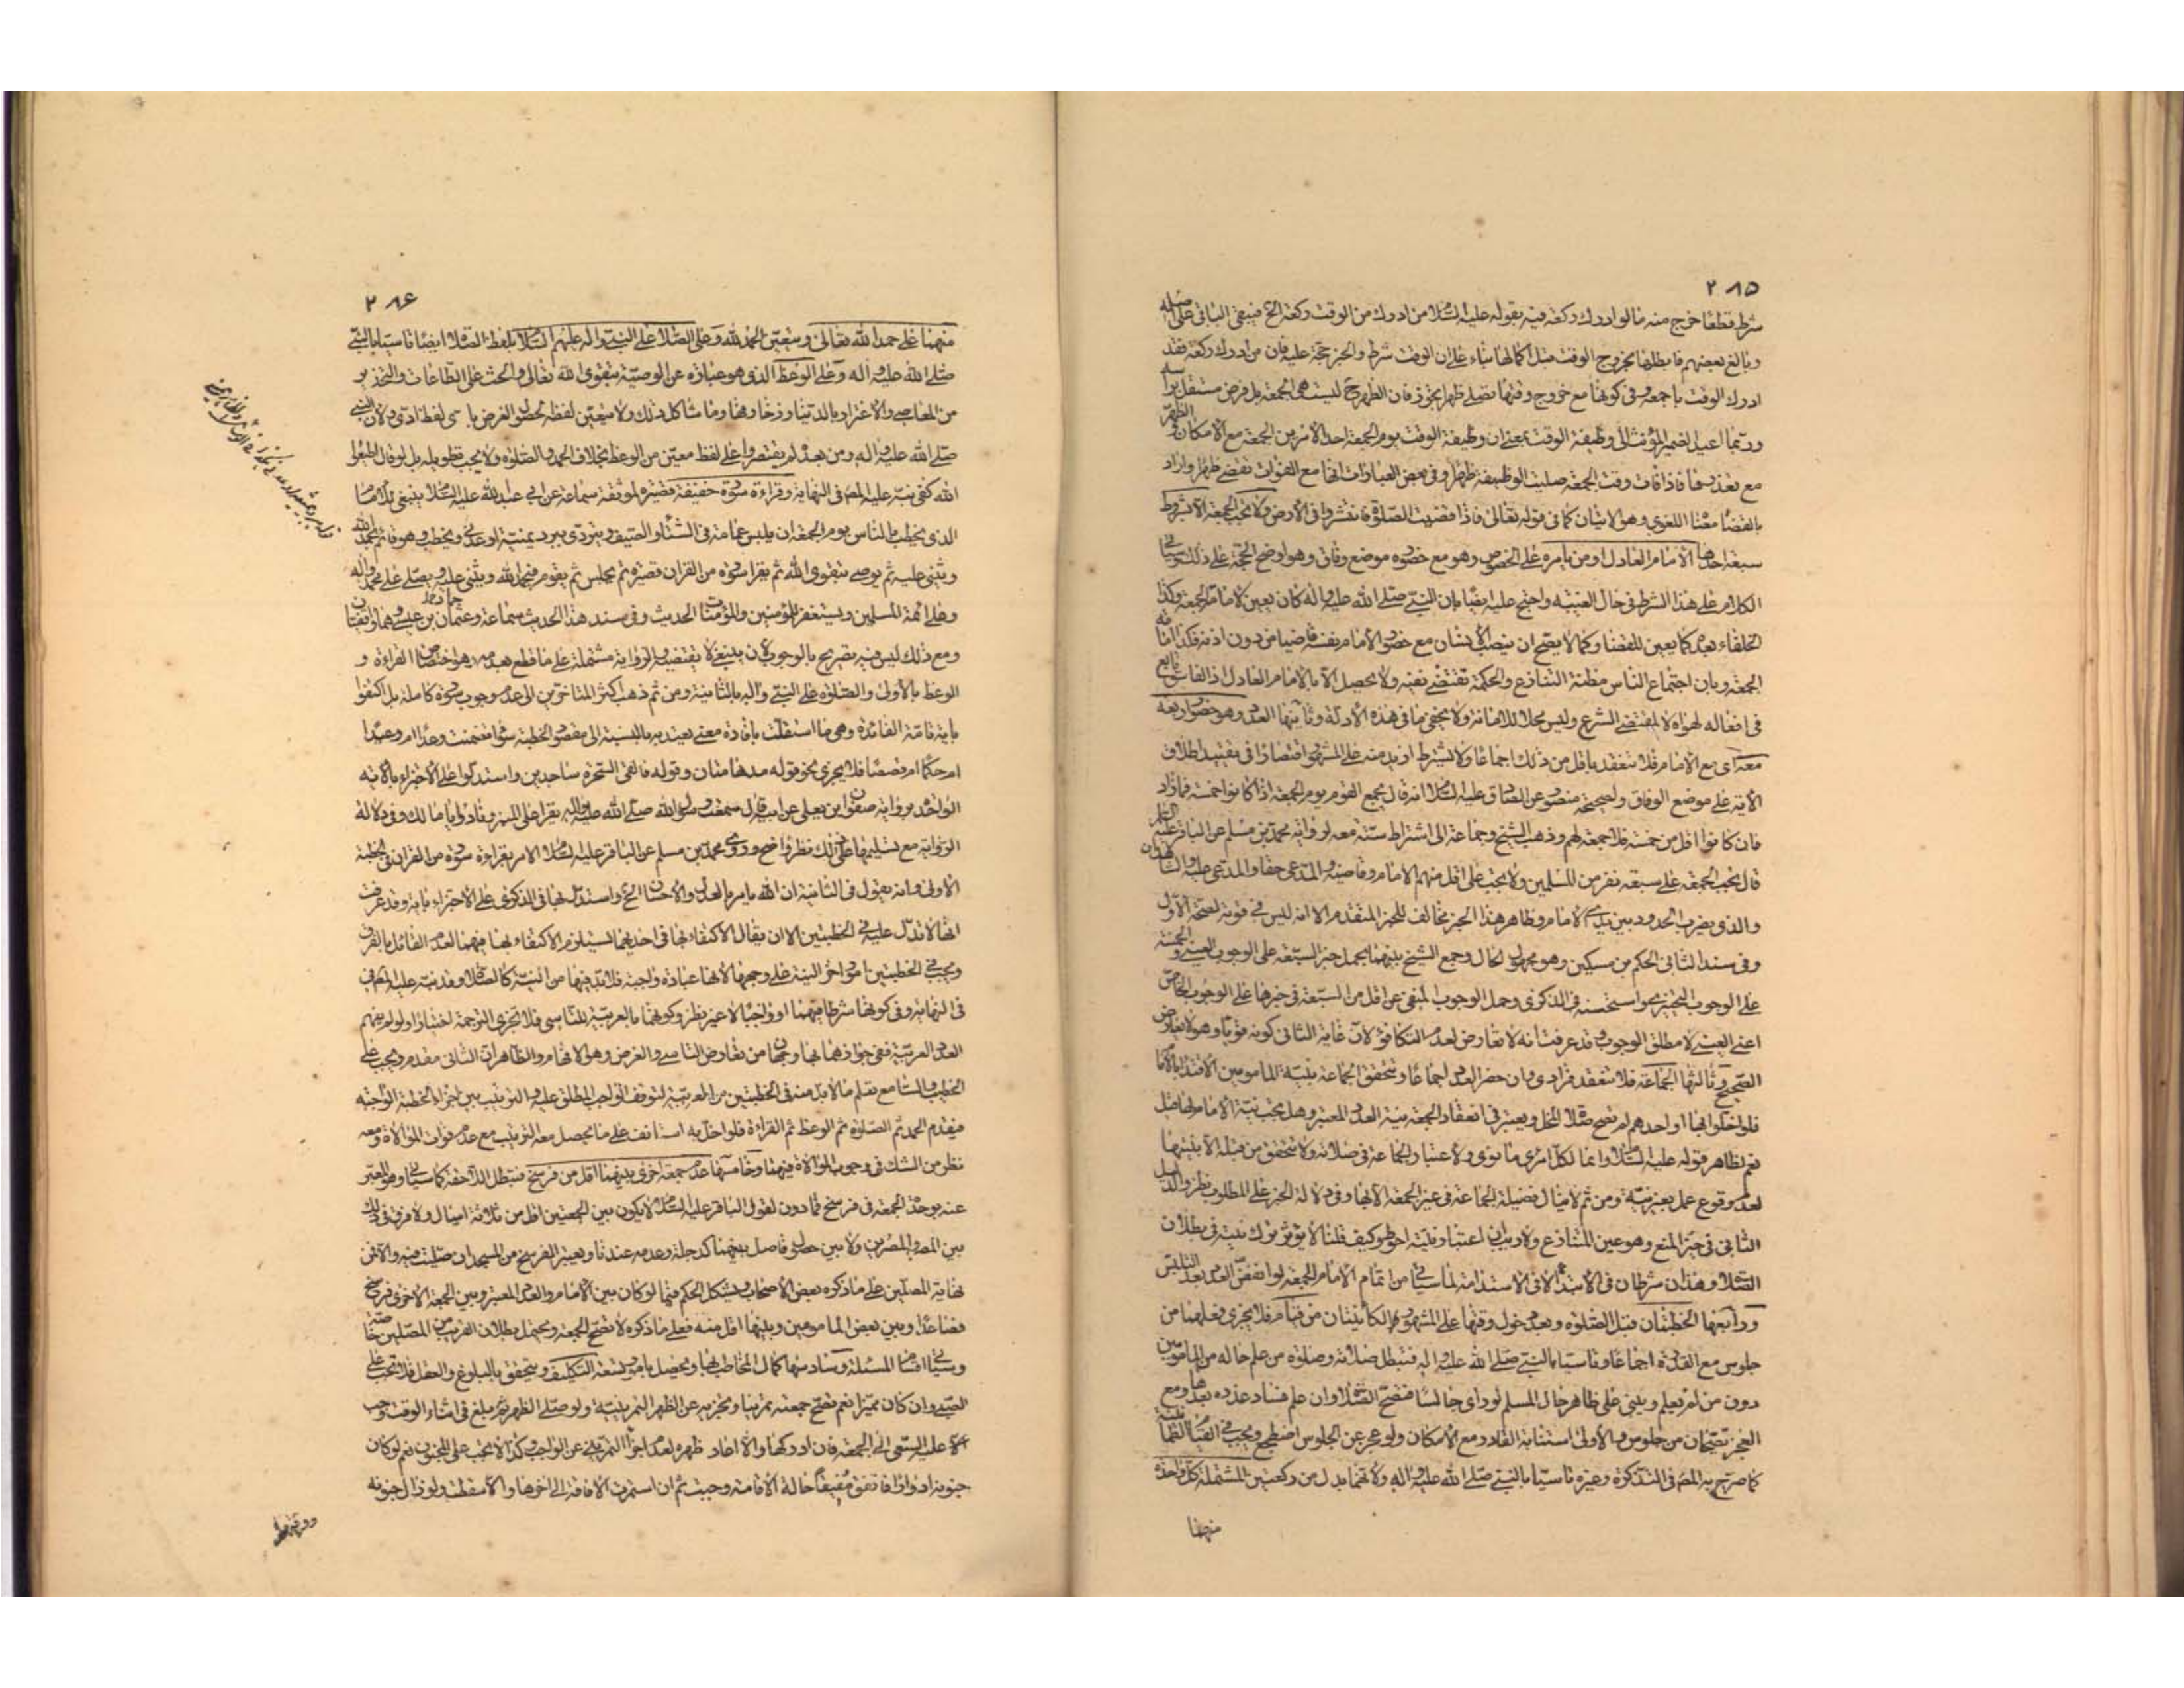 ٢٨٥
شرط قطعا خرج منه ما لو ادرك ركعة فيه بقوله عليه السلام من ادرك من الوقت ركعة الخ فيبقى الباقى على اصله
وبالغ بعضهم فابطلها بخروج الوقت قبل اكمالها بناء على ان الوقت شرط والخبر حجة عليه فان من ادرك ركعة فقد
ادرك الوقت باجمعه وفى كونها مع خروج وقتها تصلى ظهرا تجوز فان الظهر ح ليست هى الجمعة بل فرض مستقل براسه
وربما اعيد الضمير المؤنث الى وظيفة الوقت بمعنى ان وظيفة الوقت يوم الجمعة احد الامرين الجمعة مع الامكان والظهر
مع تعذرها فاذا فات وقت الجمعة صليت الوظيفة ظهرا وفى بعض العبارات انها مع الفوات تقضى ظهرا واراد
بالقضاء معناه اللغوى وهو الاتيان كما فى قوله تعالى فاذا قضيت الصلوة فانتشروا فى الارض ولا تجب الجمعة الا بشروط
سبعة احدها الامام العادل او من يامره على الخصوص وهو مع حضوره موضع وفاق وهو اوضح الحجة على ذلك وسياتى
الكلام على هذا الشرط فى حال الغيبة واحتج عليه ايضا بان النبى صلى الله عليه واله كان يعين لامامة الجمعة وكذا
الخلفاء بعده كما يعين للقضاء وكما لا يصح ان ينصب الانسان مع حضور الامام نفسه قاضيا من دون اذنه فكذا امامة
الجمعة وبان اجتماع الناس مظنة التنازع والحكمة تقتضى نفيه ولا يحصل الا بالامام العادل اذ الفاسق تابع
فى افعاله لهواه لا لمقتضى الشرع وليس محلا للامانة ولا يخفى ما فى هذه الادلة وثانيها العدد وهو حضور اربعة
معه اى مع الامام فلا تنعقد باقل من ذلك اجماعا ولا يشترط ازيد منه على المشهور اقتصارا فى تقييد اطلاق
الاية على موضع الوفاق ولصحيحة منصور عن الصادق عليه السلام انه قال يجمع القوم يوم الجمعة اذا كانوا خمسة فما زاد
فان كانوا اقل من خمسة فلا جمعة لهم وذهب الشيخ وجماعة الى اشتراط ستة معه لرواية محمد بن مسلم عن الباقر عليه السلام
قال تجب الجمعة على سبعة نفر من المسلمين ولا يجب على اقل منهم الامام وقاضيه والمدعى حقا والمدعى عليه والشاهدان
والذى يضرب الحدود بين يدى الامام وظاهر هذا الخبر مخالف للخبر المتقدم الا انه ليس فى قوته لصحة الاول
وفى سند الثانى الحكم بن مسكين وهو مجهول الحال وجمع الشيخ بينهما بحمل خبر السبعة على الوجوب العينى والخمسة
على الوجوب التخييرى واستحسنه فى الذكرى وحمل الوجوب المنفى عن اقل من السبعة فى خبرها على الوجوب الخاص
اعنى العينى لا مطلق الوجوب وقد عرفت انه لا تعارض لعدم التكافؤ لان غاية الثانى كونه قويا وهو لا يعارض
الصحيح وثالثها الجماعة فلا تنعقد فرادى وان حضر العدد اجماعا وتتحقق الجماعة بنية المامومين الاقتداء بالامام
فلو اخلوا بها او احدهم لم تصح صلاة المخل ويعتبر فى انعقاد الجمعة نية العدد المعتبر وهل يجب نية الامام لها قيل
نعم لظاهر قوله عليه السلام وانما لكل امرئ ما نوى ولاعتبار الجماعة فى صلاته ولا تتحقق من قبله الا بنيتها
لعدم وقوع عمل بغير نية ومن ثم لا ينال فضيلة الجماعة فى غير الجمعة الا بها وفى دلالة الخبر على المطلوب نظر والدليل
الثانى فى حيز المنع وهو عين المتنازع ولا ريب ان اعتبار نيته احوط وكيف قلنا لا يؤثر ترك نيته فى بطلان
الصلاة وهذان شرطان فى الابتداء لا فى الاستدامة لما سياتى من اتمام الامام الجمعة لو انفض العدد بعد التلبس
ورابعها الخطبتان قبل الصلوة وبعد دخول وقتها على المشهور الكائنتان من قيام فلا يجزى فعلهما من
جلوس مع القدرة اجماعا وتاسيا بالنبى صلى الله عليه واله فتبطل صلاته وصلوة من علم حاله من المامومين
دون من لم يعلم ويبنى على ظاهر حال المسلم لو راى جالسا فتصح الصلاة وان علم فساد عذره بعدها ومع
العجز تصحان من جلوس والاولى استنابة القادر مع الامكان ولو عجز عن الجلوس اضطجع ويجب فى القيام الطمانينة
كما صرح به المصّ فى التذكرة وغيره تاسيا بالنبى صلى الله عليه واله ولانهما بدل من ركعتين المشتملة كل واحدة
منهما
٢٨٦
منهما على حمد الله تعالى ويتعين الحمد لله وعلى الصلاة على النبى واله عليهم السلام بلفظ الصلاة ايضا تاسيا بالنبى
صلى الله عليه واله وعلى الوعظ الذى هو عبارة عن الوصية بتقوى الله تعالى والحث على الطاعات والتحذير
من المعاصى والاغترار بالدنيا وزخارفها وما شاكل ذلك ولا يتعين لفظه لحصول الغرض باى لفظ ادى ولان النبى
صلى الله عليه واله ومن بعده لم يقتصروا على لفظ معين من الوعظ بخلاف الحمد والصلوة ولا يجب تطويله بل لو قال اطيعوا
الله كفى نبه عليه المصّ فى النهاية وقراءة سورة خفيفة قصيرة لموثقة سماعة عن ابى عبد الله عليه السلام ينبغى للامام
الذى يخطب بالناس يوم الجمعة ان يلبس عمامة فى الشتاء والصيف ويتردى ببرد يمنية او عدنى ويخطب وهو قائم يحمد الله
ويثنى عليه ثم يوصى بتقوى الله ثم يقرا سورة من القران قصيرة ثم يجلس ثم يقوم فيحمد الله ويثنى عليه ويصلى على محمد واله
وعلى ائمة المسلمين ويستغفر للمؤمنين والمؤمنات الحديث وفى سند هذا الحديث سماعة وعثمان بن عيسى وهما واقفيان
ومع ذلك ليس فيه تصريح بالوجوب لان ينبغى لا يقتضيه والرواية مشتملة على ما قطع بعدمه وهو اختصاص القراءة و
الوعظ بالاولى والصلوة على النبى واله بالثانية ومن ثم ذهب اكثر المتاخرين الى عدم وجوب سورة كاملة بل اكتفوا
باية تامة الفائدة وهى ما استقلت بافادة معنى يعتد به بالنسبة الى مقصود الخطبة سواء تضمنت وعدا ام وعيدا
ام حكما ام قصصا فلا يجزى نحو قوله مدهامتان وقوله فالقى السحرة ساجدين واستدلوا على الاجتزاء بالاية
الواحدة برواية صفوان بن يعلى عن ابيه قال سمعت رسول الله صلى الله عليه واله يقرا على المنبر ونادوا يا مالك وفى دلالة
الرواية مع تسليمها على ذلك نظر واضح وروى محمد بن مسلم عن الباقر عليه السلام الامر بقراءة سورة من القران فى الخطبة
الاولى وانه يقول فى الثانية ان الله يامر بالعدل والاحسان الخ واستدل بها فى الذكرى على الاجتزاء باية وقد عرفت
انها لا تدل عليه فى الخطبتين الا ان يقال الاكتفاء بها فى احديهما يستلزم الاكتفاء بها فيهما لعدم القائل بالفرق
ويجب فى الخطبتين امور اخر النية على وجهها لانها عبادة واجبة فلا بد فيها من النية كالصلاة وقد نبه عليه المصّ
فى النهاية وفى كونها شرطا فيهما او واجبا لا غير نظر وكونهما بالعربية للتاسى فلا تجزى الترجمة اختيارا ولو لم يفهم
العدد العربية ففى جوازهما بها وجهان من تعارض التاسى والغرض وهو الافهام والظاهر ان الثانى مقدم ويجب على
الخطيب والسامع تعلم ما لا بد منه فى الخطبتين من العربية لتوقف الواجب المطلق عليه والترتيب بين اجزاء الخطبة الواجبة
فيقدم الحمد ثم الصلوة ثم الوعظ ثم القراءة فلو اخل به استانف على ما يحصل معه الترتيب مع عدم فوات الموالاة ومعه
نظر من الشك فى وجوب الموالاة فيهما وخامسها عدم جمعة اخرى بينهما اقل من فرسخ فتبطل اللاحقة كما سياتى وهو المعبر
عنه بوحدة الجمعة فى فرسخ فما دون لقول الباقر عليه السلام لا يكون بين الجمعتين اقل من ثلاثة اميال ولا فرق فى ذلك
بين المصر والمصرين ولا بين حصول فاصل بينهما كدجلة وعدمه عندنا ويعتبر الفرسخ من المسجد ان صليت فيه والا فمن
نهاية المصلين على ما ذكره بعض الاصحاب ويشكل الحكم فيما لو كان بين الامام والعدد المعتبر وبين الجمعة الاخرى فرسخ
فصاعدا وبين بعض المامومين وبينها اقل منه فعلى ما ذكره لا تصح الجمعة ويحتمل بطلان القريب من المصلين خاصة
وسياتى اقسام المسئلة وسادسها كمال المخاطب بها ويحصل بامور تسعة التكليف ويتحقق بالبلوغ والعقل فلا تجب على
الصبى وان كان مميزا نعم تصح جمعته تمرينا وتجزيه عن الظهر التمرينية ولو صلى الظهر ثم بلغ فى اثناء الوقت وجب
عليه السعى الى الجمعة فان ادركها والا اعاد ظهره لعدم اجزاء التمرينى عن الواجب وكذا لا يجب على المجنون نعم لو كان
جنونه ادوارا فاتفق مفيقا حالة الاقامة وجبت ثم ان استمرت الافاقة الى اخرها والا سقطت ولو زال جنونه